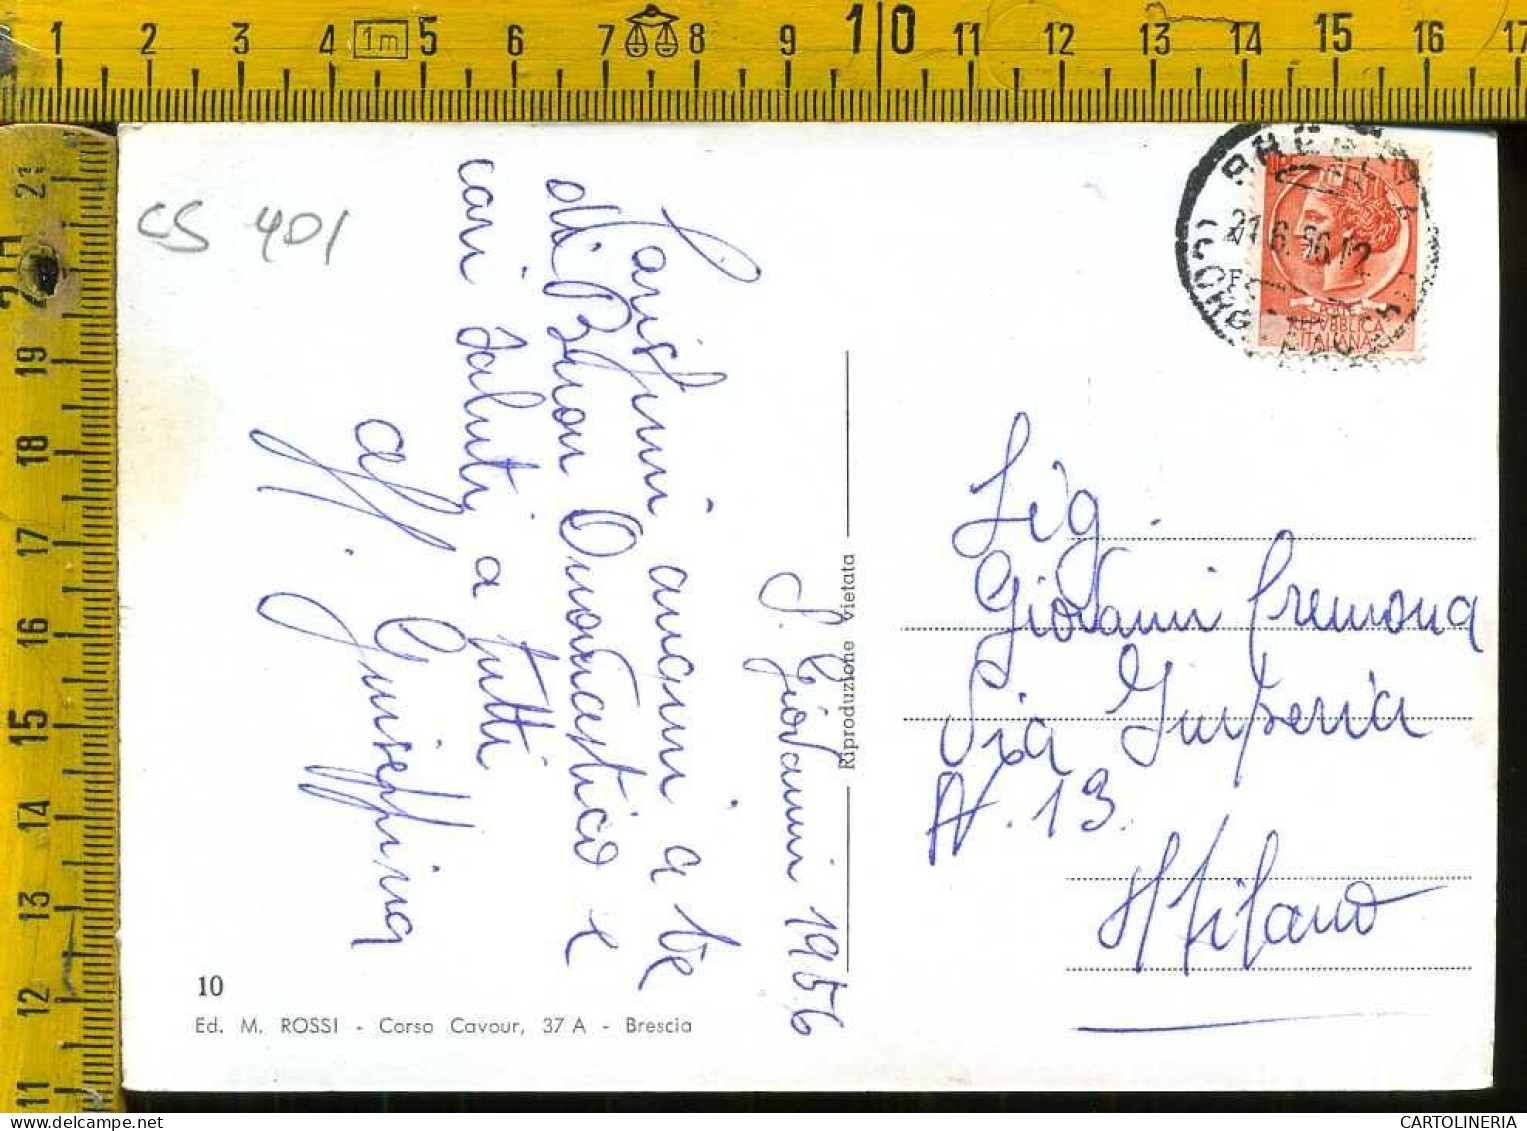 1 2 3 4 1m 5 6 7 8 9 1|0 11 12 13 14 15 16 17
21
19
18
17
16
15
14
13
12
11
CS 401
S. Giovanni 1956
Carissimi auguri a te
di Buon Onomastico e
cari saluti a tutti
aff.
Giuseppina
10
Ed. M. ROSSI - Corso Cavour, 37 A - Brescia
Riproduzione vietata
BRESCIA
21.6.56.12
REPVBBLICA
ITALIANA
Sig.
Giovanni Cremona
Via Imperia
N. 13
Milano
CARTOLINERIA